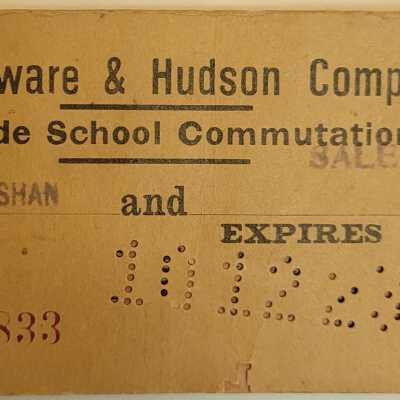 ware & Hudson Comp
de School Commutation
SALE
SHAN and
EXPIRES
10 12 2
833
J